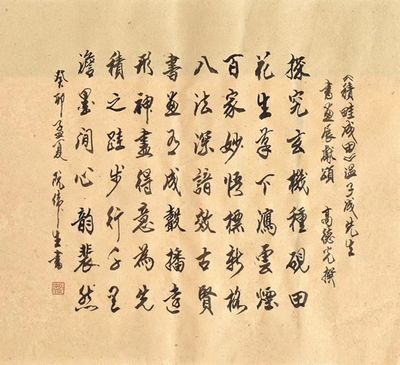 《積畦成田》溫子成先生
書畫展獻頌 高德光撰
探究玄機種硯田
花生筆下瀉雲煙
百家妙悟標新格
八法深諳效古賢
書畫有成聲播遠
形神盡得意為先
積之跬步行千里
澹墨間心韻裴然
癸卯孟夏 阮偉生書